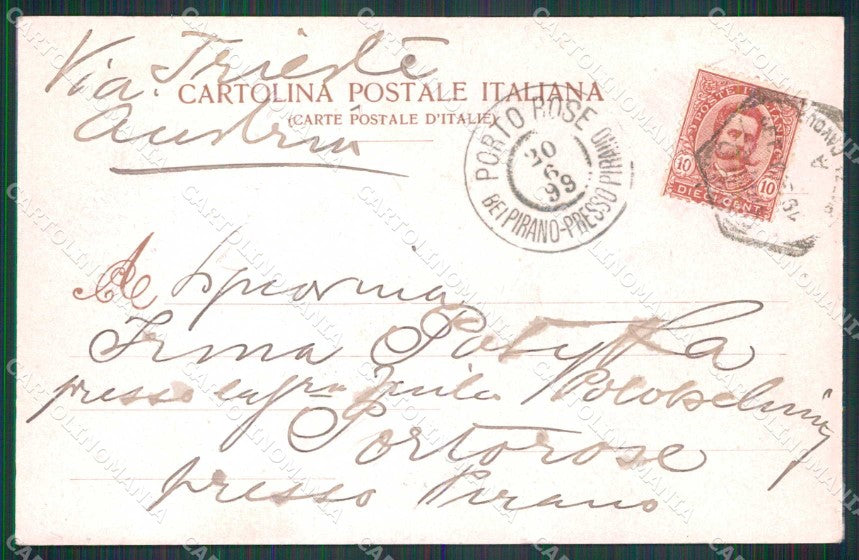 Via Trieste
CARTOLINA POSTALE ITALIANA
(CARTE POSTALE D'ITALIE)
Austria
PORTO ROSE
BEI PIRANO-PRESSO PIRANO
20
6
99
POSTE ITALIANE
10 10
DIECI CENT.
A Signorina
Irma
presso la Sgra
Portorose
presso Pirano
CARTOLINOMANIA